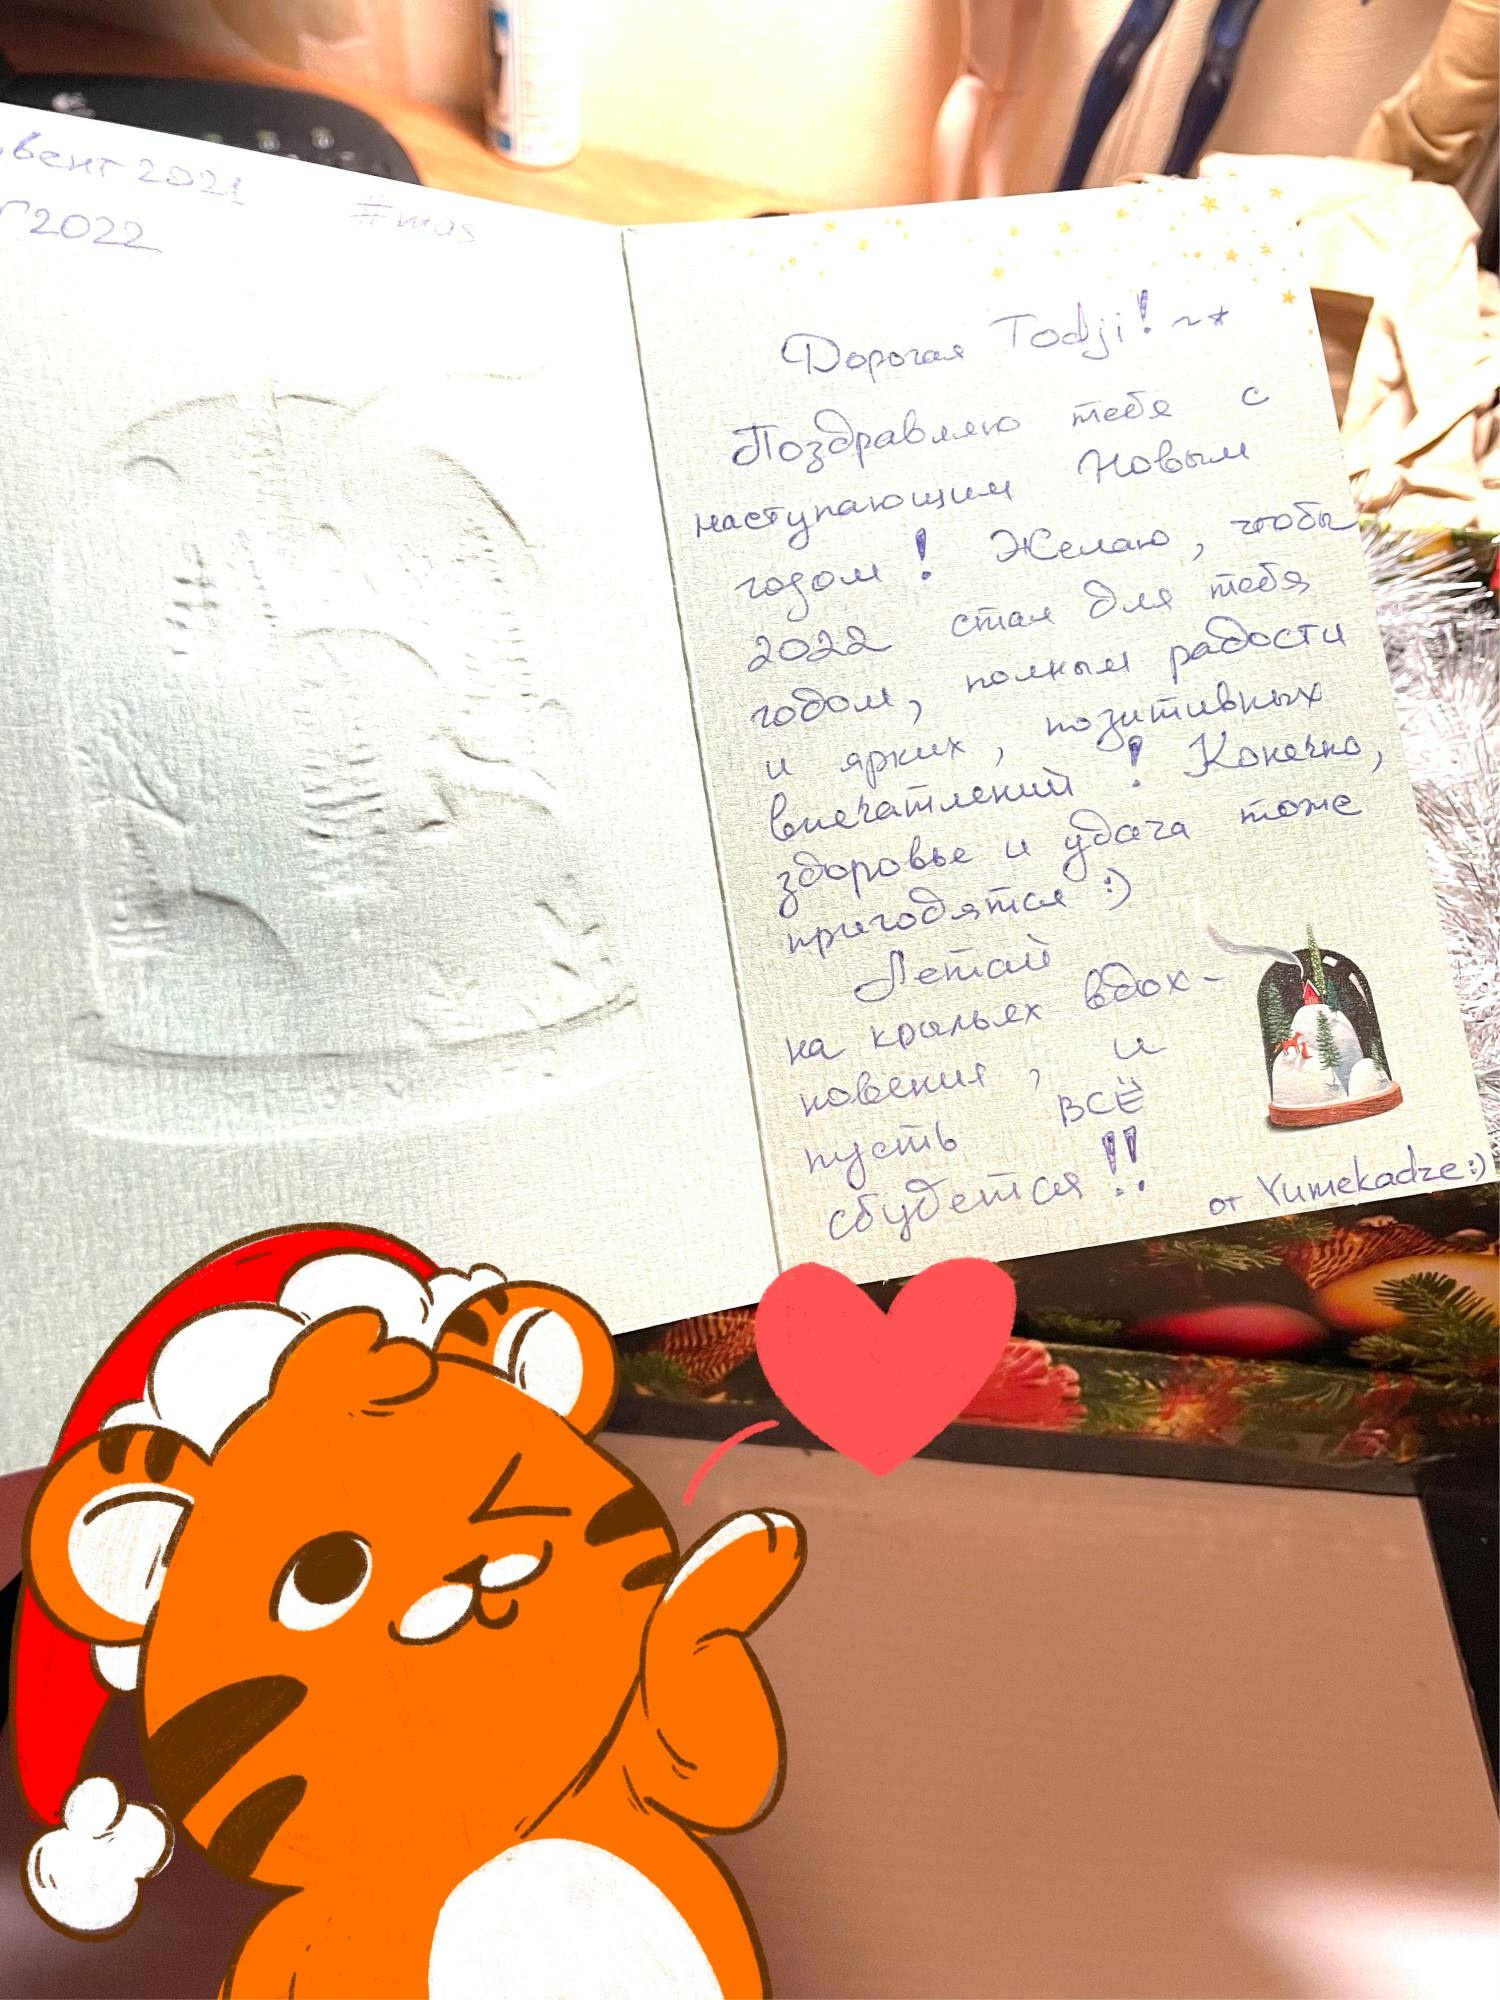 вент 2021
2022
#mas
Дорогая Todji! ~*
Поздравляю тебя с
наступающим Новым
годом! Желаю, чтобы
2022 стал для тебя
годом, полным радости
и ярких, позитивных
впечатлений! Конечно,
здоровье и удача тоже
пригодятся :)
Летай
на крыльях вдох-
новения, и
пусть всё
сбудется!!
от Yumekadze :)